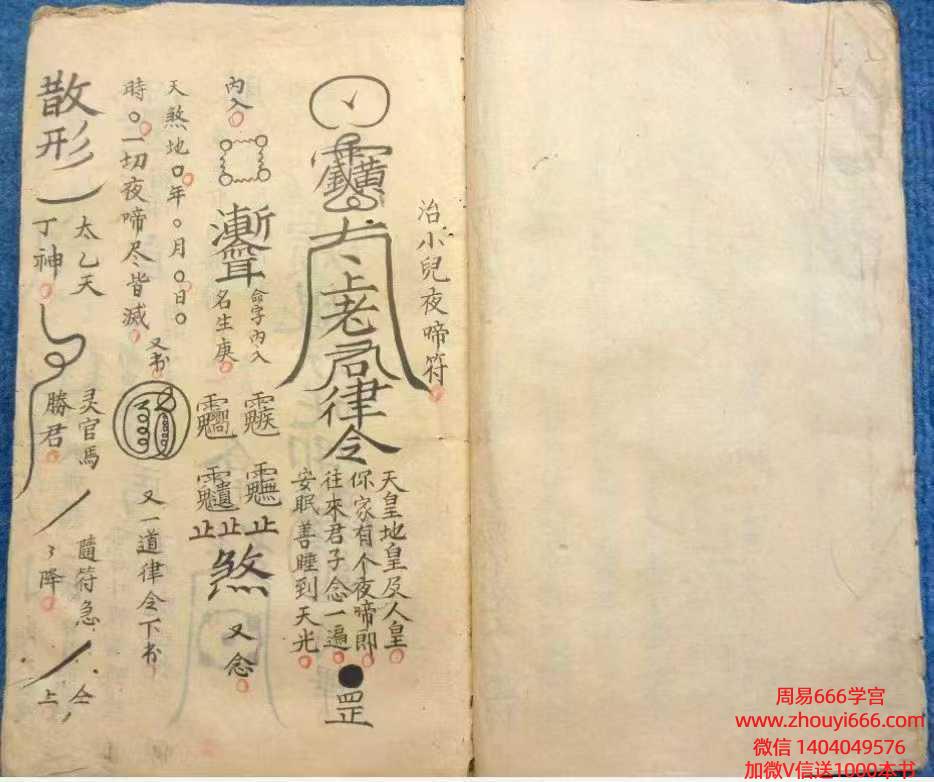 治小兒夜啼符
太上老君律令
天皇地皇及人皇
你家有个夜啼郎
往來君子念一遍
安眠善睡到天光
罡
內入
命字內入
名生庚
止止止
煞
又念
天煞地〇年〇月〇日〇
時〇一切夜啼尽皆滅
又书
又一道律令下书
散形
太乙天
丁神
灵官馬
勝君
隨符急
降
上
周易666学宫
www.zhouyi666.com
微信 1404049576
加微V信送1000本书